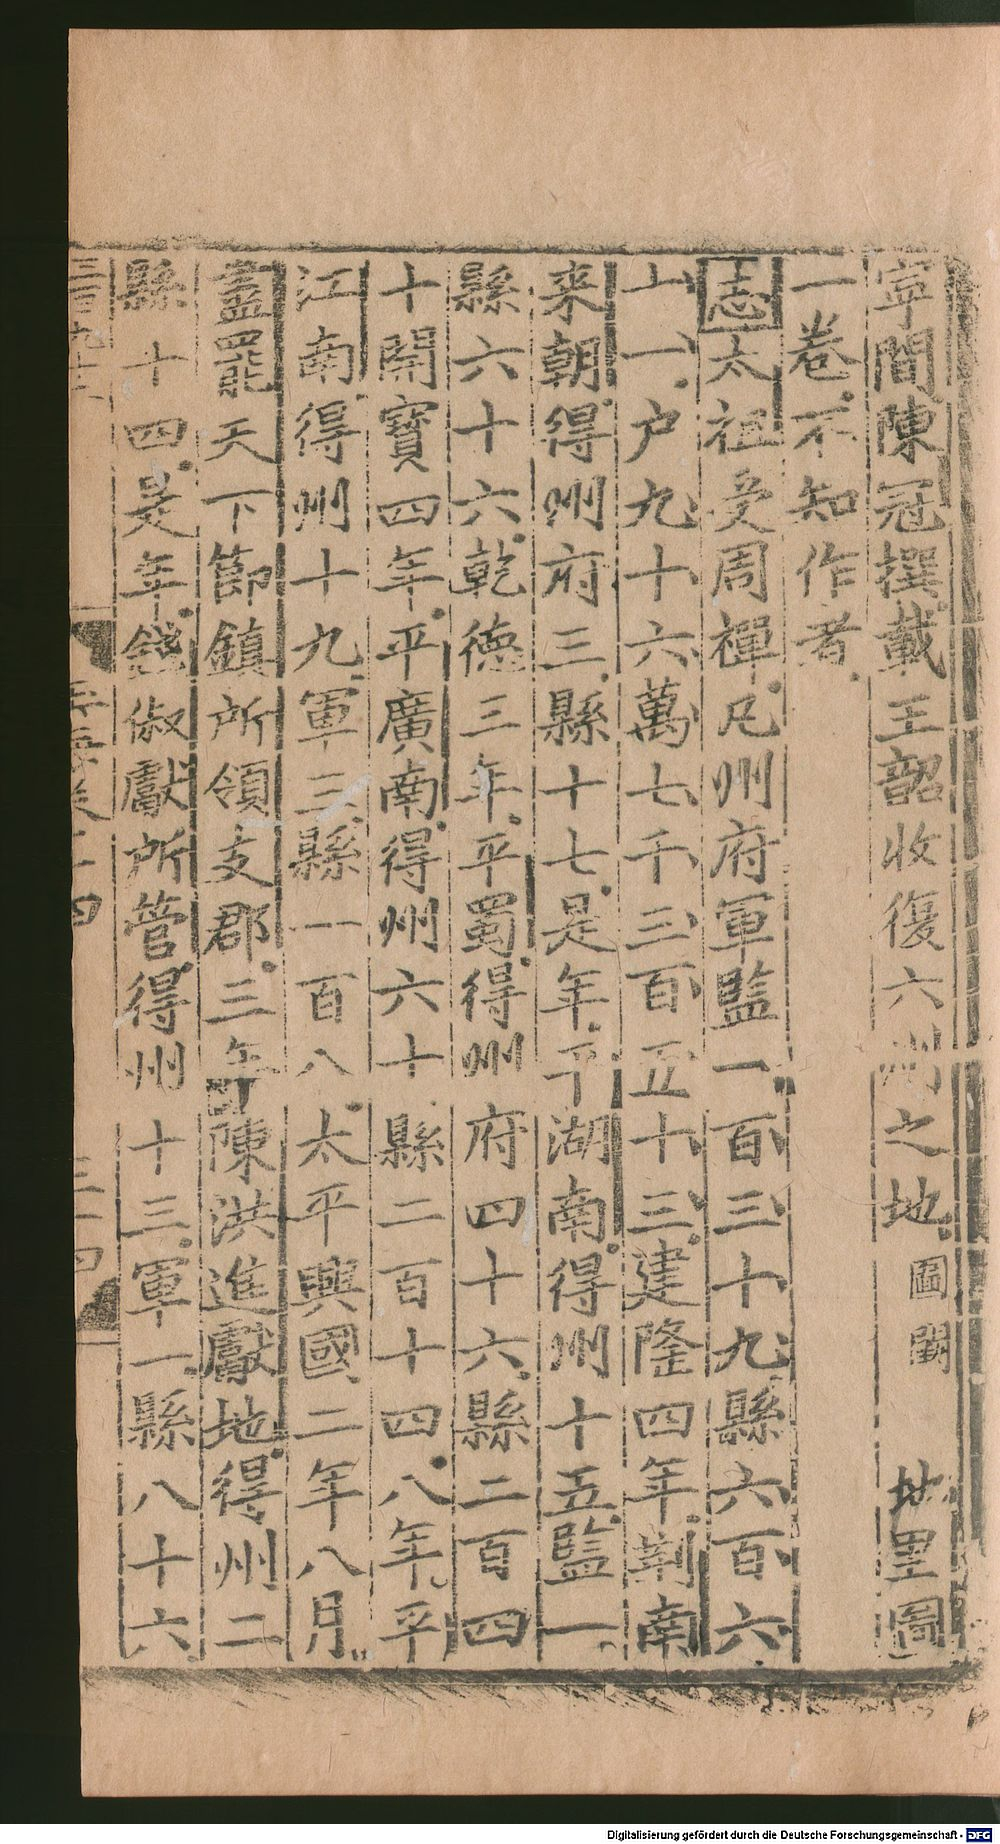 寧間陳冠撰載王韶收復六州之地圖闕 地里圖
一卷不知作者
志太祖受周禪凡州府軍監一百三十九縣六百六
十一戶九十六萬七千三百五十三建隆四年荊南
来朝得州府三縣十七是年平湖南得州十五監一
縣六十六乾德三年平蜀得州府四十六縣二百四
十開寶四年平廣南得州六十縣二百十四八年平
江南得州十九軍三縣一百八太平興國二年八月
盡罷天下節鎮所領支郡三年陳洪進獻地得州二
縣十四是年錢俶獻所管得州十三軍一縣八十六
Digitalisierung gefördert durch die Deutsche Forschungsgemeinschaft - DFG